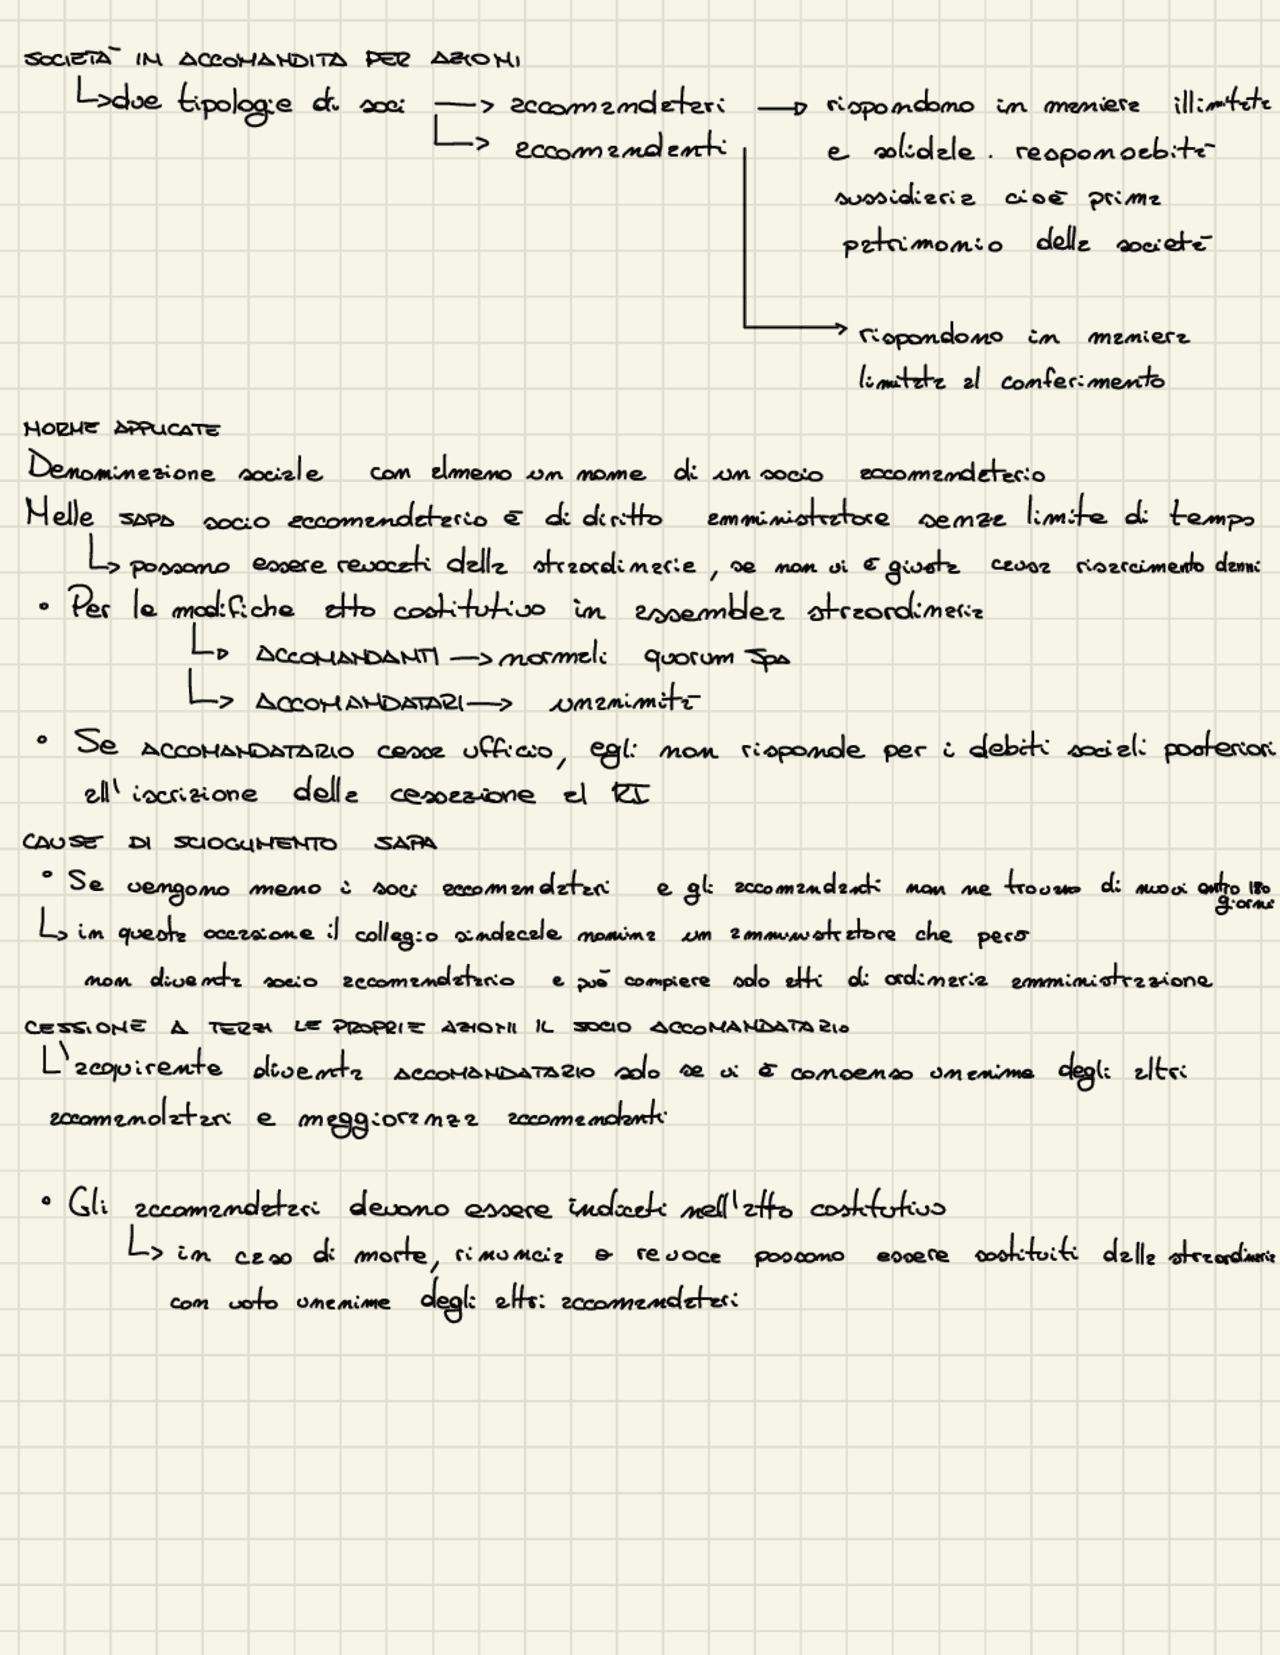 SOCIETÀ IN ACCOMANDITA PER AZIONI
due tipologie di soci → accomandatari → rispondono in maniera illimitata
accomandanti e solidale. responsabità
sussidiaria cioè prima
patrimonio della società
rispondono in maniera
limitata al conferimento
NORME APPLICATE
Denominazione sociale con almeno un nome di un socio accomandatario
Nelle SAPA socio accomandatario è di diritto amministratore senza limite di tempo
↳ possono essere revocati dalla straordinaria, se non vi è giusta causa risarcimento danni
• Per le modifiche atto costitutivo in assemblea straordinaria
↳ ACCOMANDANTI → normali quorum Spa
↳ ACCOMANDATARI → unanimità
• Se ACCOMANDATARIO cessa ufficio, egli non risponde per i debiti sociali posteriori
all'iscrizione della cessazione al RI
CAUSE DI SCIOGLIMENTO SAPA
• Se vengono meno i soci accomandatari e gli accomandanti non ne trovano di nuovi entro 180
giorni
↳ in questa occasione il collegio sindacale nomina un amministratore che però
non diventa socio accomandatario e può compiere solo atti di ordinaria amministrazione
CESSIONE A TERZI LE PROPRIE AZIONI IL SOCIO ACCOMANDATARIO
L'acquirente diventa ACCOMANDATARIO solo se vi è consenso unanime degli altri
accomandatari e maggioranza accomandanti
• Gli accomandatari devono essere indicati nell'atto costitutivo
↳ in caso di morte, rinuncia o revoca possono essere sostituiti dalla straordinaria
con voto unanime degli altri accomandatari